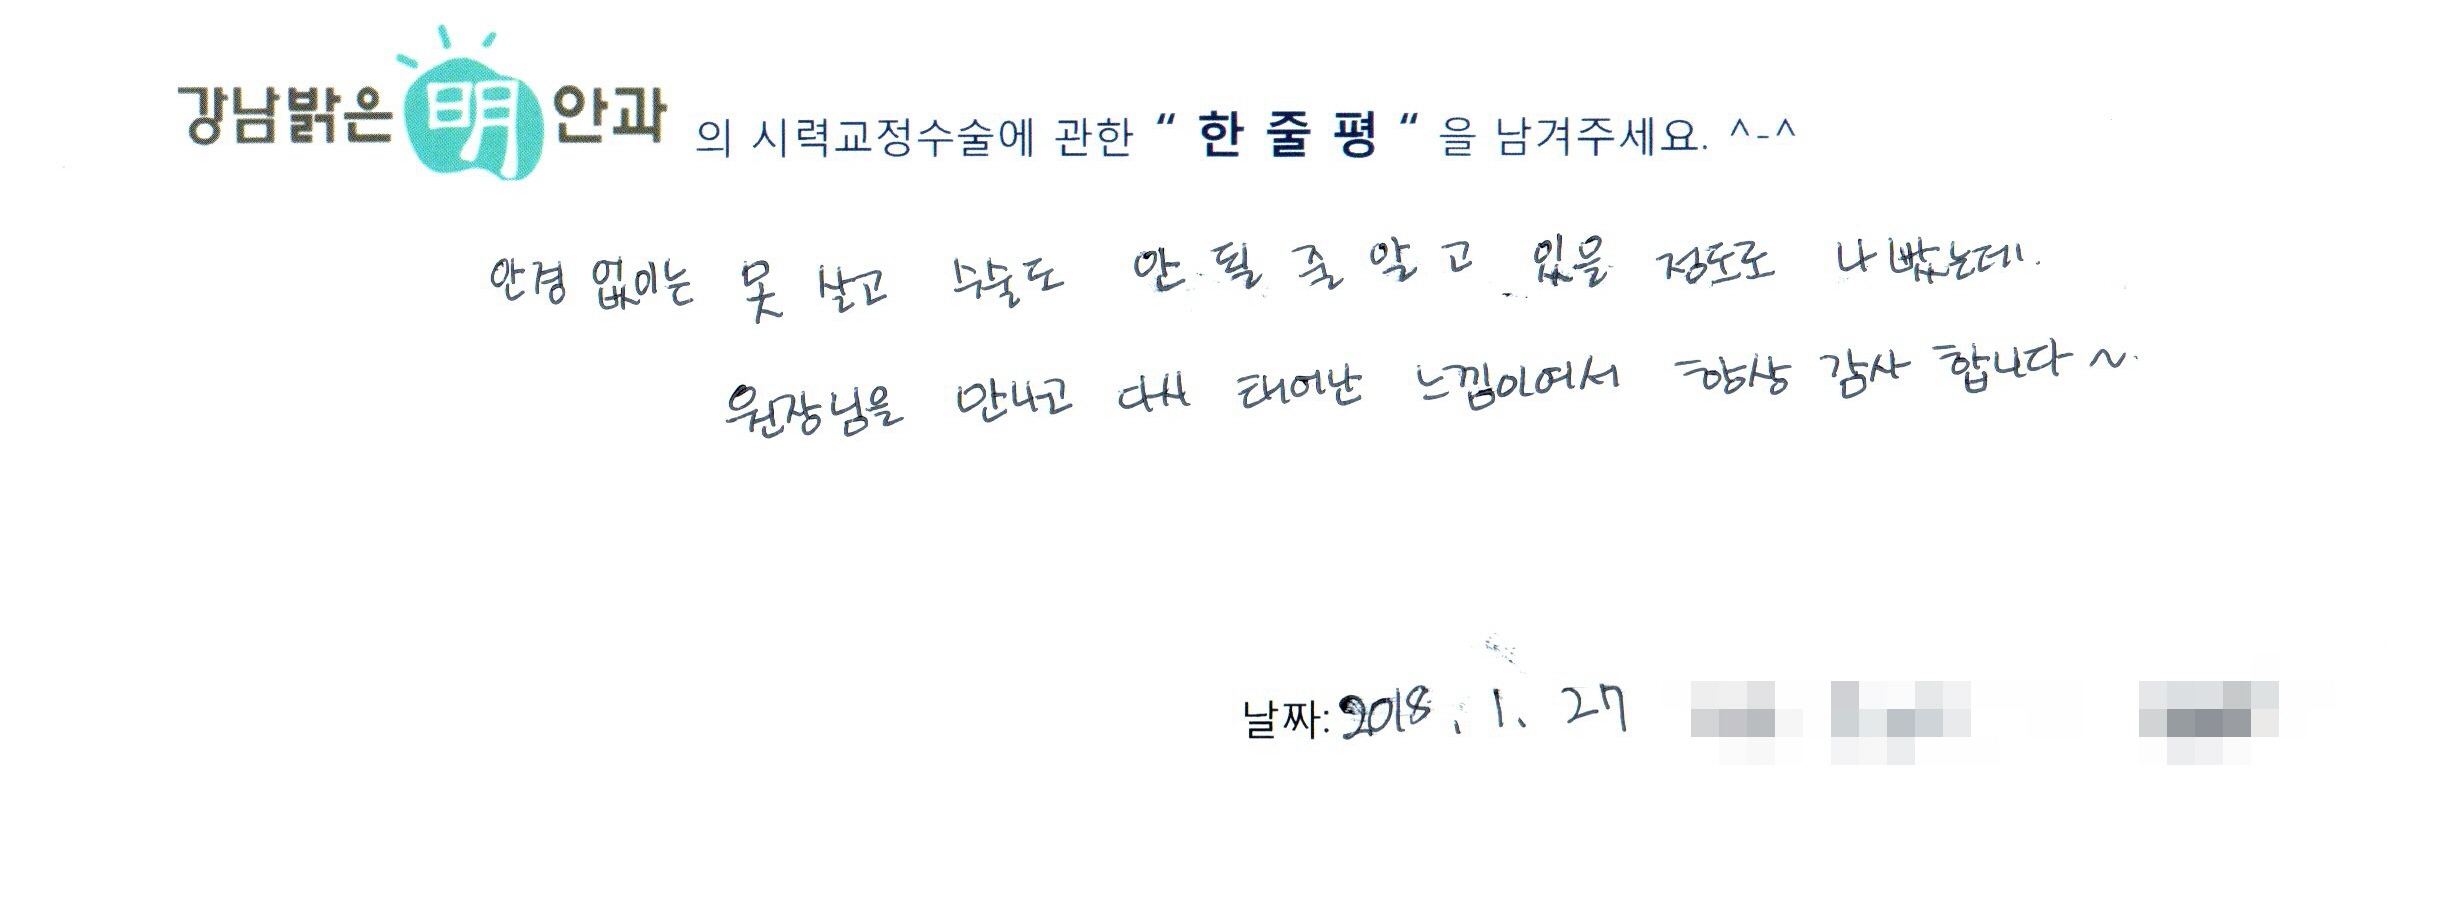 강남밝은 明 안과 의 시력교정수술에 관한 “ 한 줄 평 “ 을 남겨주세요. ^-^
안경 없이는 못 살고 수술도 안 될 줄 알고 있을 정도로 나빴는데.
원장님을 만나고 다시 태어난 느낌이여서 항상 감사 합니다 ~.
날짜: 2018. 1. 27